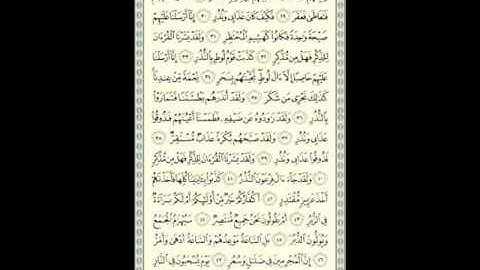 فَتَعَاطَىٰ فَعَقَرَ ٢٩ فَكَيْفَ كَانَ عَذَابِي وَنُذُرِ ٣٠ إِنَّآ أَرْسَلْنَا عَلَيْهِمْ
صَيْحَةً وَٰحِدَةً فَكَانُوا۟ كَهَشِيمِ ٱلْمُحْتَظِرِ ٣١ وَلَقَدْ يَسَّرْنَا ٱلْقُرْءَانَ
لِلذِّكْرِ فَهَلْ مِن مُّدَّكِرٍ ٣٢ كَذَّبَتْ قَوْمُ لُوطٍۭ بِٱلنُّذُرِ ٣٣ إِنَّآ أَرْسَلْنَا
عَلَيْهِمْ حَاصِبًا إِلَّآ ءَالَ لُوطٍ نَّجَّيْنَٰهُم بِسَحَرٍ ٣٤ نِّعْمَةً مِّنْ عِندِنَا
كَذَٰلِكَ نَجْزِي مَن شَكَرَ ٣٥ وَلَقَدْ أَنذَرَهُم بَطْشَتَنَا فَتَمَارَوْا۟
بِٱلنُّذُرِ ٣٦ وَلَقَدْ رَٰوَدُوهُ عَن ضَيْفِهِۦ فَطَمَسْنَآ أَعْيُنَهُمْ فَذُوقُوا۟
عَذَابِي وَنُذُرِ ٣٧ وَلَقَدْ صَبَّحَهُم بُكْرَةً عَذَابٌ مُّسْتَقِرٌّ ٣٨
فَذُوقُوا۟ عَذَابِي وَنُذُرِ ٣٩ وَلَقَدْ يَسَّرْنَا ٱلْقُرْءَانَ لِلذِّكْرِ فَهَلْ مِن مُّدَّكِرٍ
٤٠ وَلَقَدْ جَآءَ ءَالَ فِرْعَوْنَ ٱلنُّذُرُ ٤١ كَذَّبُوا۟ بِـَٔايَٰتِنَا كُلِّهَا فَأَخَذْنَٰهُمْ
أَخْذَ عَزِيزٍ مُّقْتَدِرٍ ٤٢ أَكُفَّارُكُمْ خَيْرٌ مِّنْ أُو۟لَٰٓئِكُمْ أَمْ لَكُم بَرَآءَةٌ
فِي ٱلزُّبُرِ ٤٣ أَمْ يَقُولُونَ نَحْنُ جَمِيعٌ مُّنتَصِرٌ ٤٤ سَيُهْزَمُ ٱلْجَمْعُ
وَيُوَلُّونَ ٱلدُّبُرَ ٤٥ بَلِ ٱلسَّاعَةُ مَوْعِدُهُمْ وَٱلسَّاعَةُ أَدْهَىٰ وَأَمَرُّ
٤٦ إِنَّ ٱلْمُجْرِمِينَ فِي ضَلَٰلٍ وَسُعُرٍ ٤٧ يَوْمَ يُسْحَبُونَ فِي ٱلنَّارِ